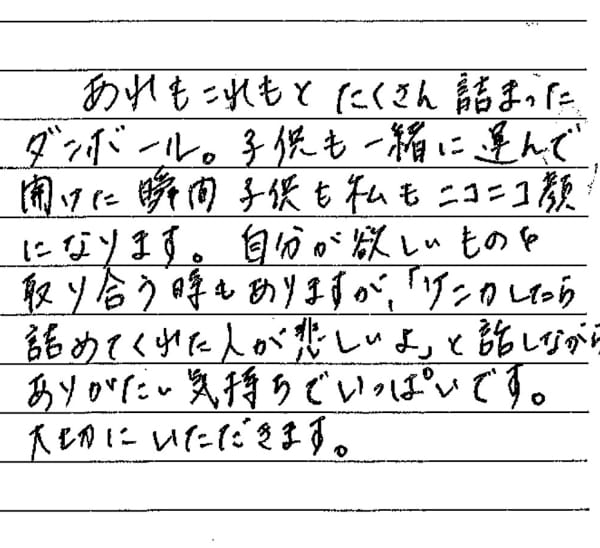 あれもこれもと たくさん 詰まった
ダンボール。子供も一緒に運んで
開けた瞬間 子供も私もニコニコ顔
になります。自分が欲しいものを
取り合う時もありますが、「ケンカしたら
詰めてくれた人が悲しいよ」と話しながら
ありがたい気持ちでいっぱいです。
大切にいただきます。